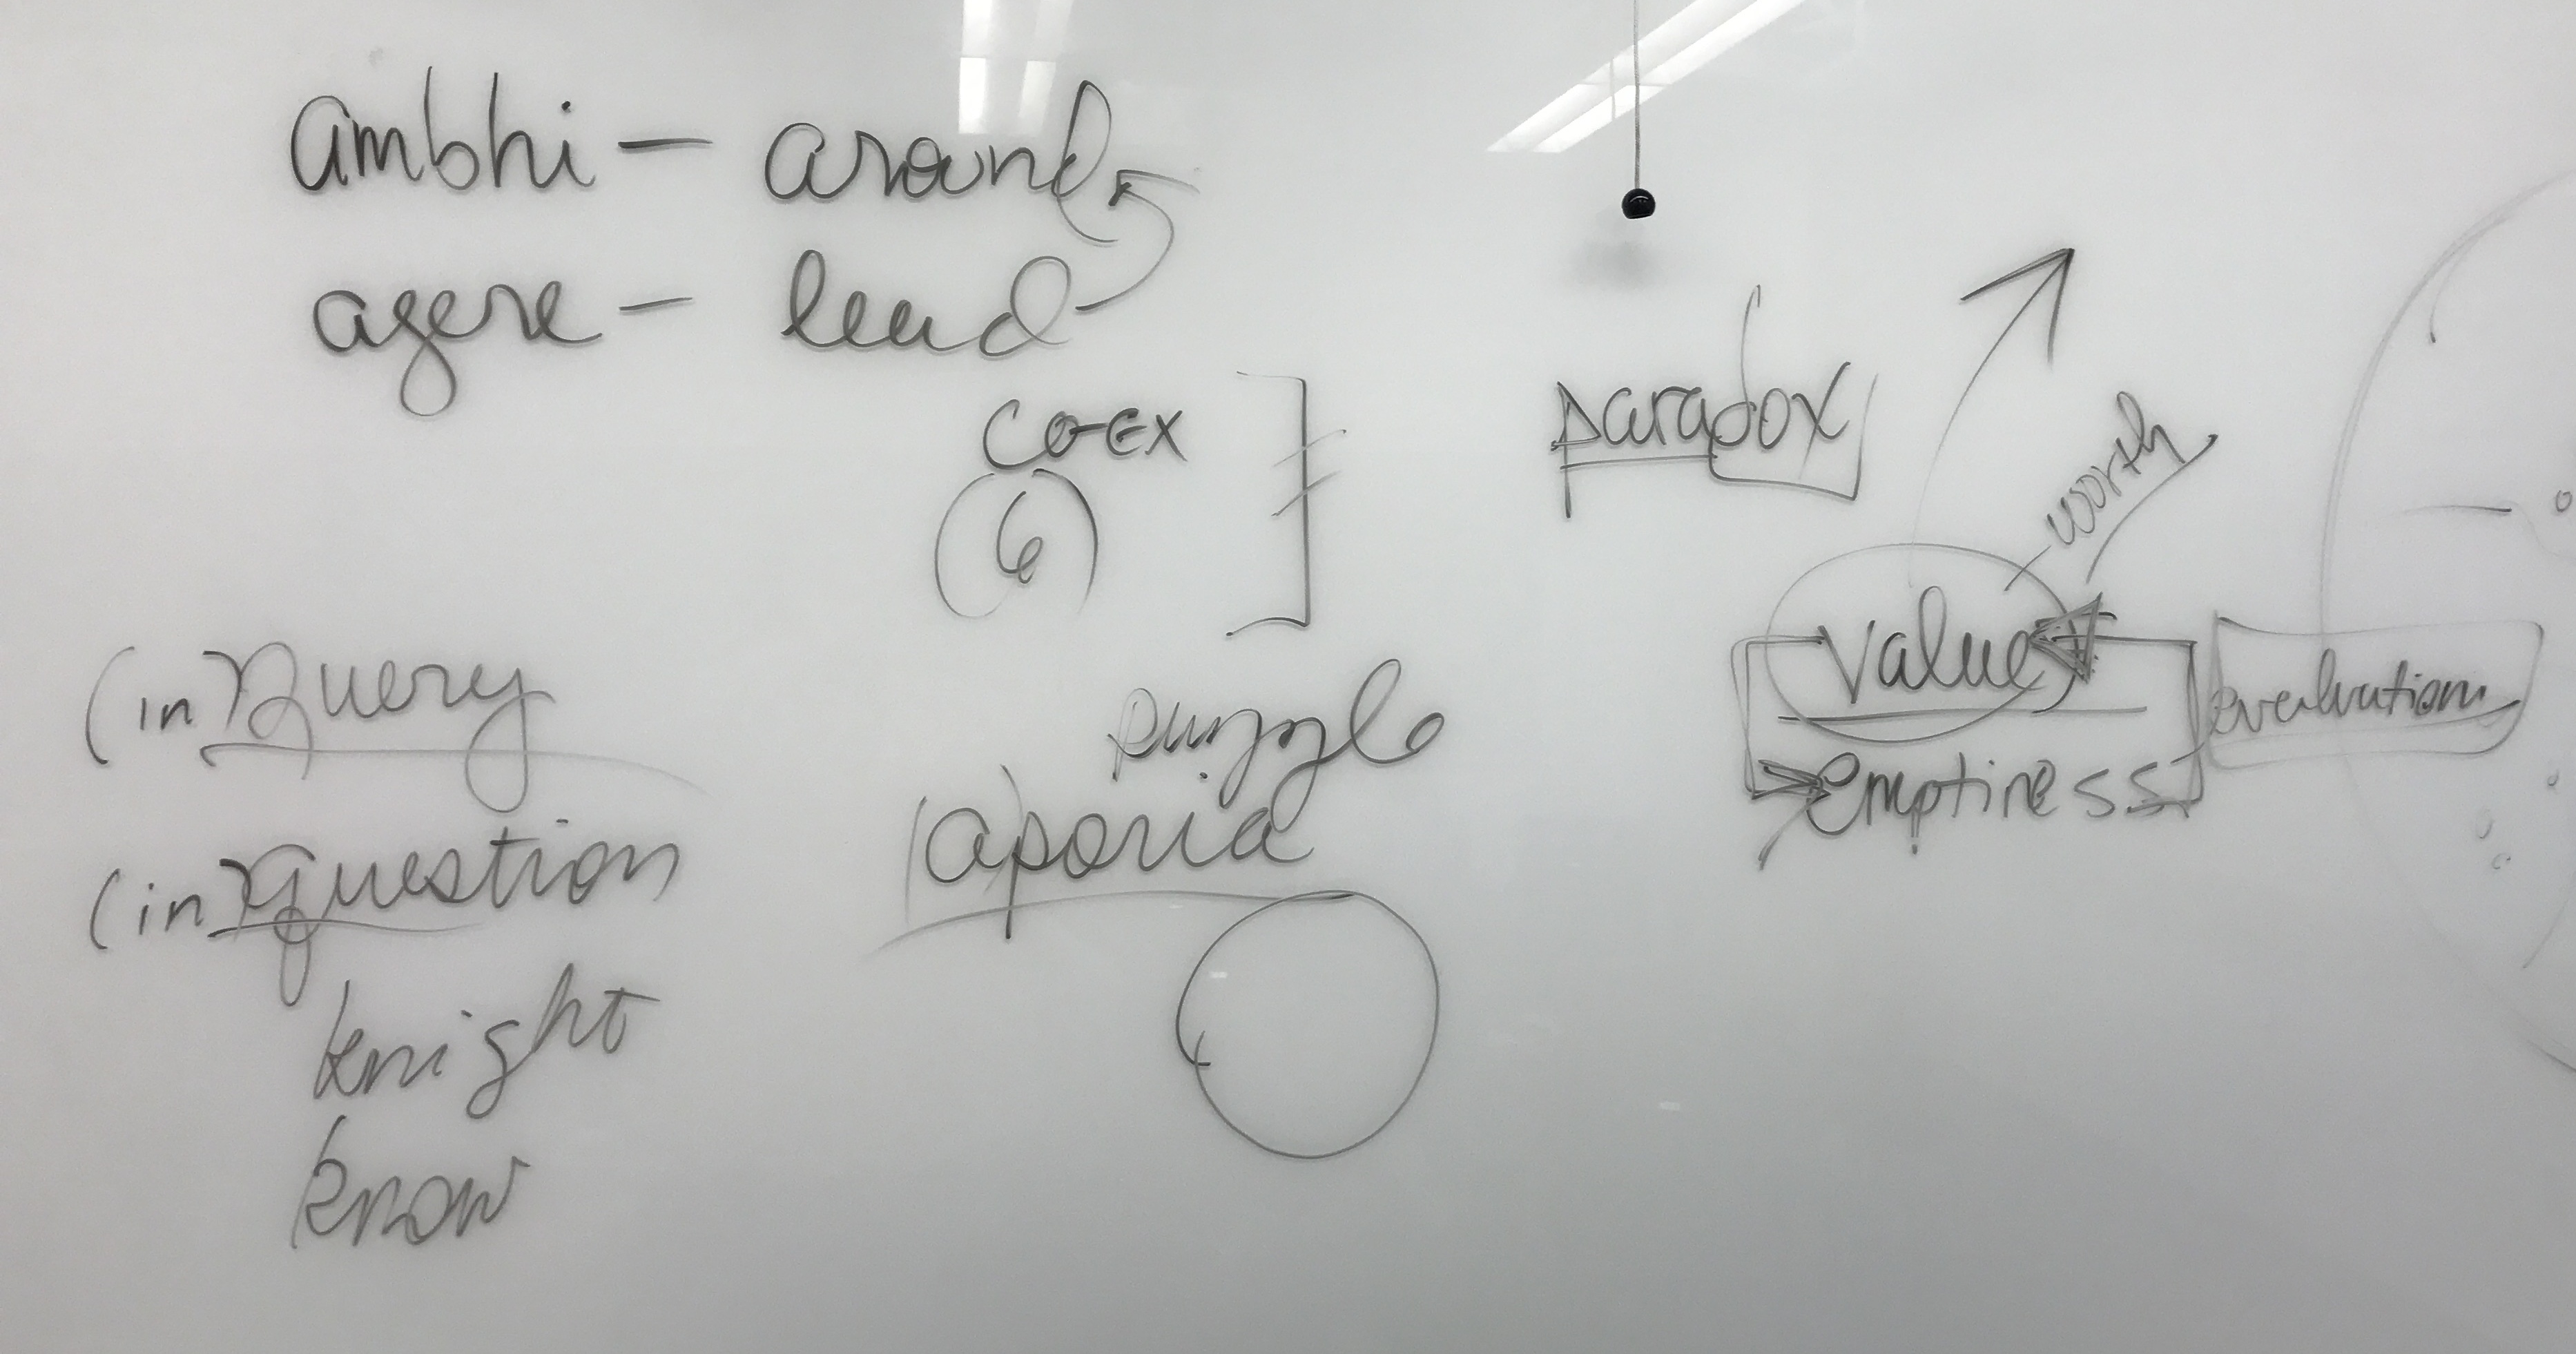 ambhi — around
agere — lead
co-Ex
(6)
paradox
- worth
value
emptiness
evaluation
(in) Query
(in) question
knight
know
puzzle
aporia